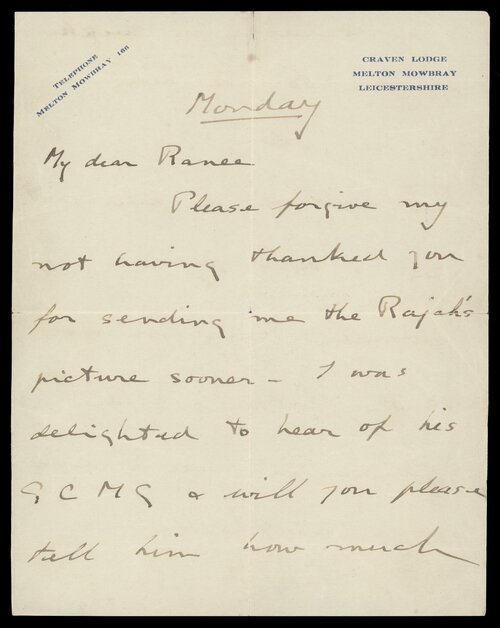 TELEPHONE
MELTON MOWBRAY 166
CRAVEN LODGE
MELTON MOWBRAY
LEICESTERSHIRE
Monday
My dear Ranee
Please forgive my
not having thanked you
for sending me the Rajah's
picture sooner - I was
delighted to hear of his
G C M G & will you please
tell him how much